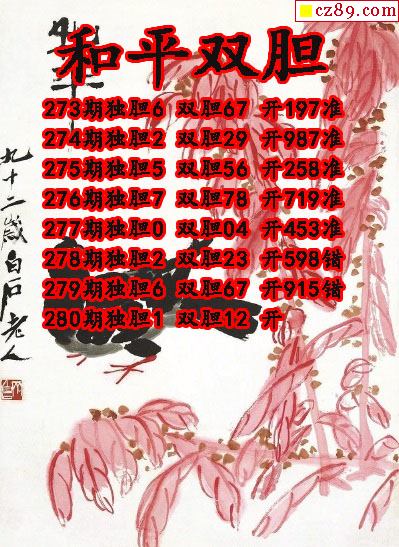 cz89.com
和平双胆
273期独胆6 双胆67 开197准
274期独胆2 双胆29 开987准
275期独胆5 双胆56 开258准
276期独胆7 双胆78 开719准
277期独胆0 双胆04 开453准
278期独胆2 双胆23 开598错
279期独胆6 双胆67 开915错
280期独胆1 双胆12 开
九十二岁白石老人